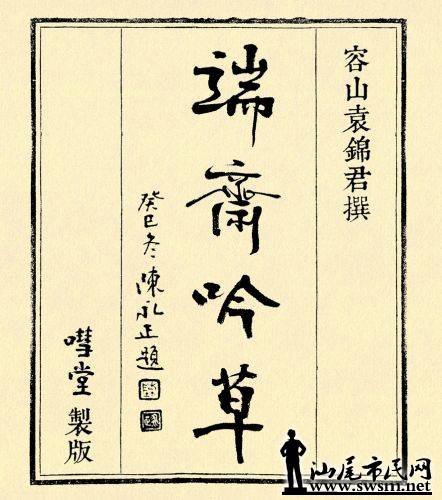 容山袁錦君撰
端齋吟草
癸巳冬陳永正題
堂製版
汕尾市民网
www.swsm.net